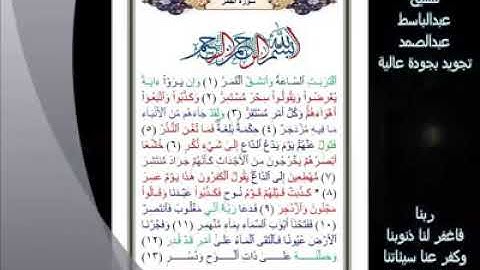 سورة القمر
للشيخ
عبدالباسط
عبدالصمد
تجويد بجودة عالية
بسم الله الرحمن الرحيم
اقْتَرَبَتِ السَّاعَةُ وَانشَقَّ الْقَمَرُ (١) وَإِن يَرَوْا ءَايَةً
يُعْرِضُوا وَيَقُولُوا سِحْرٌ مُّسْتَمِرٌّ (٢) وَكَذَّبُوا وَاتَّبَعُوا
أَهْوَاءَهُمْ وَكُلُّ أَمْرٍ مُّسْتَقِرٌّ (٣) وَلَقَدْ جَاءَهُم مِّنَ الْأَنبَاءِ
مَا فِيهِ مُزْدَجَرٌ (٤) حِكْمَةٌ بَالِغَةٌ فَمَا تُغْنِ النُّذُرُ (٥)
فَتَوَلَّ عَنْهُمْ يَوْمَ يَدْعُ الدَّاعِ إِلَى شَيْءٍ نُّكُرٍ (٦) خُشَّعًا
أَبْصَارُهُمْ يَخْرُجُونَ مِنَ الْأَجْدَاثِ كَأَنَّهُمْ جَرَادٌ مُّنتَشِرٌ
(٧) مُّهْطِعِينَ إِلَى الدَّاعِ يَقُولُ الْكَافِرُونَ هَذَا يَوْمٌ عَسِرٌ
(٨) * كَذَّبَتْ قَبْلَهُمْ قَوْمُ نُوحٍ فَكَذَّبُوا عَبْدَنَا وَقَالُوا
مَجْنُونٌ وَازْدُجِرَ (٩) فَدَعَا رَبَّهُ أَنِّي مَغْلُوبٌ فَانتَصِرْ
(١٠) فَفَتَحْنَا أَبْوَابَ السَّمَاءِ بِمَاءٍ مُّنْهَمِرٍ (١١) وَفَجَّرْنَا
الْأَرْضَ عُيُونًا فَالْتَقَى الْمَاءُ عَلَى أَمْرٍ قَدْ قُدِرَ (١٢)
وَحَمَلْنَاهُ عَلَى ذَاتِ أَلْوَاحٍ وَدُسُرٍ (١٣)
ربنا
فاغفر لنا ذنوبنا
وكفر عنا سيئاتنا